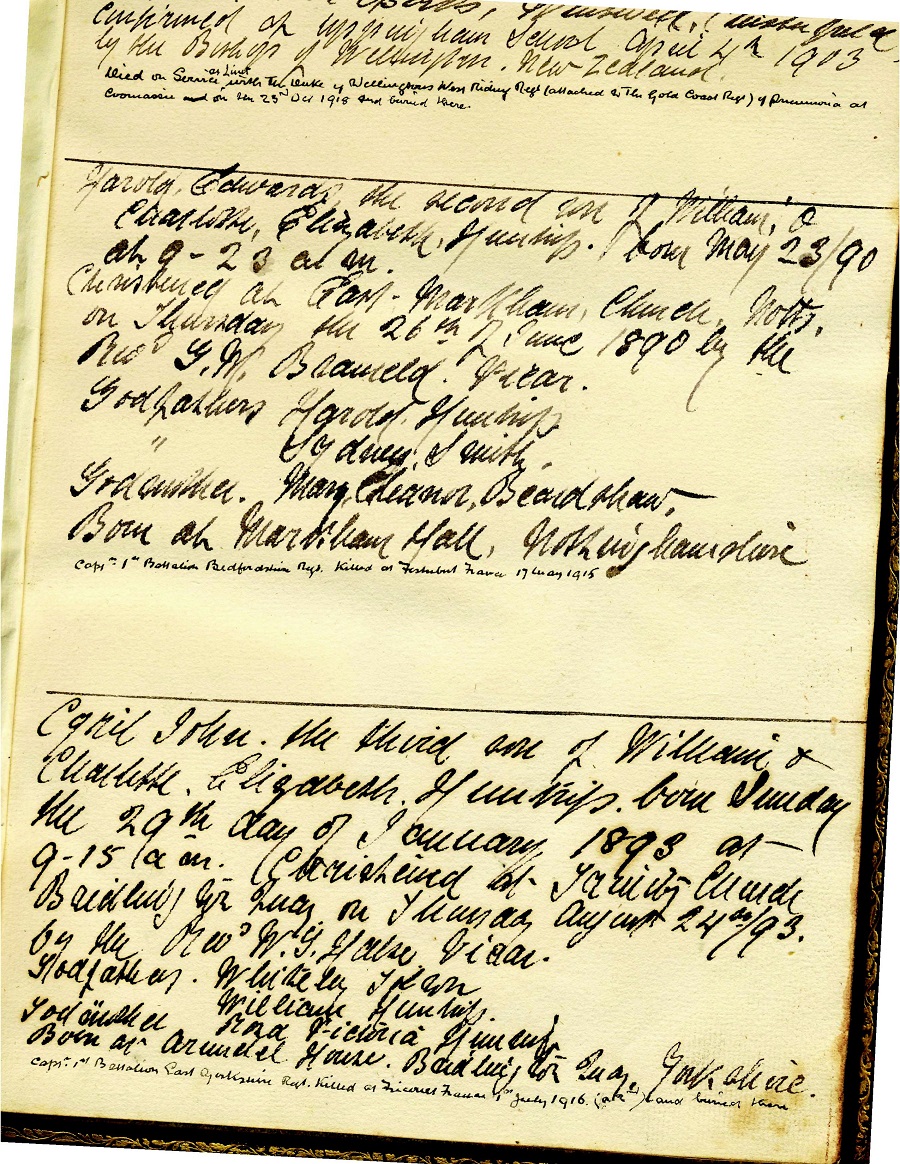 confirmed at Uppingham School April 4th 1903
by the Bishop of Wellington. New Zealand.
Died on Service as Lieut with the Duke of Wellingtons West Riding Regt (attached to The Gold Coast Regt) of Pneumonia at
Coomassie and on the 25th Oct 1918 and buried there.
Harold, Edward, the second son of William, &
Charlotte, Elizabeth, Huntriss. born May 23/90
at 9-23 a m.
Christened at East-Markham, Church, Notts,
on Thursday the 26th of June 1890 by the
Revd G.W. Brameld. Vicar.
Godfathers Harold. Huntriss
" Sydney. Smith,
Godmother. Mary, Eleanor, Beardshaw,
Born at Markham Hall, Nottinghamshire
Capt- 1st Battalion Bedfordshire Regt. Killed at Festubert France 17 May 1915
Cyril John. the third son of William &
Charlotte. Elizabeth. Huntriss. born Sunday
the 29th day of January 1893 at
9-15 a m. Christened at Trinity Church
Bridlington Quay on Thursday August 24th/93.
by the Revd W.G. Halse Vicar.
Godfathers. Whiteley
William Huntriss.
Godmother Victoria
Born at Arundel House. Bridlington Quay, Yorkshire.
Capt- 1st Battalion East Yorkshire Regt. Killed at Fricourt France 1st July 1916 and buried there